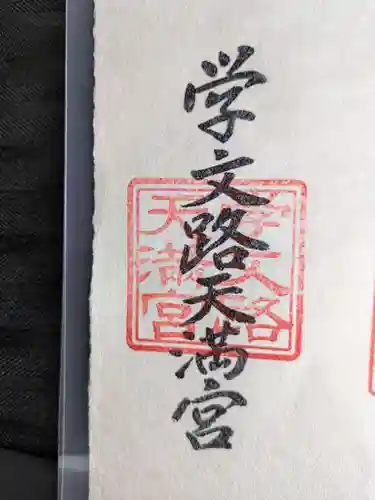 学文路天満宮
学文路
天満宮